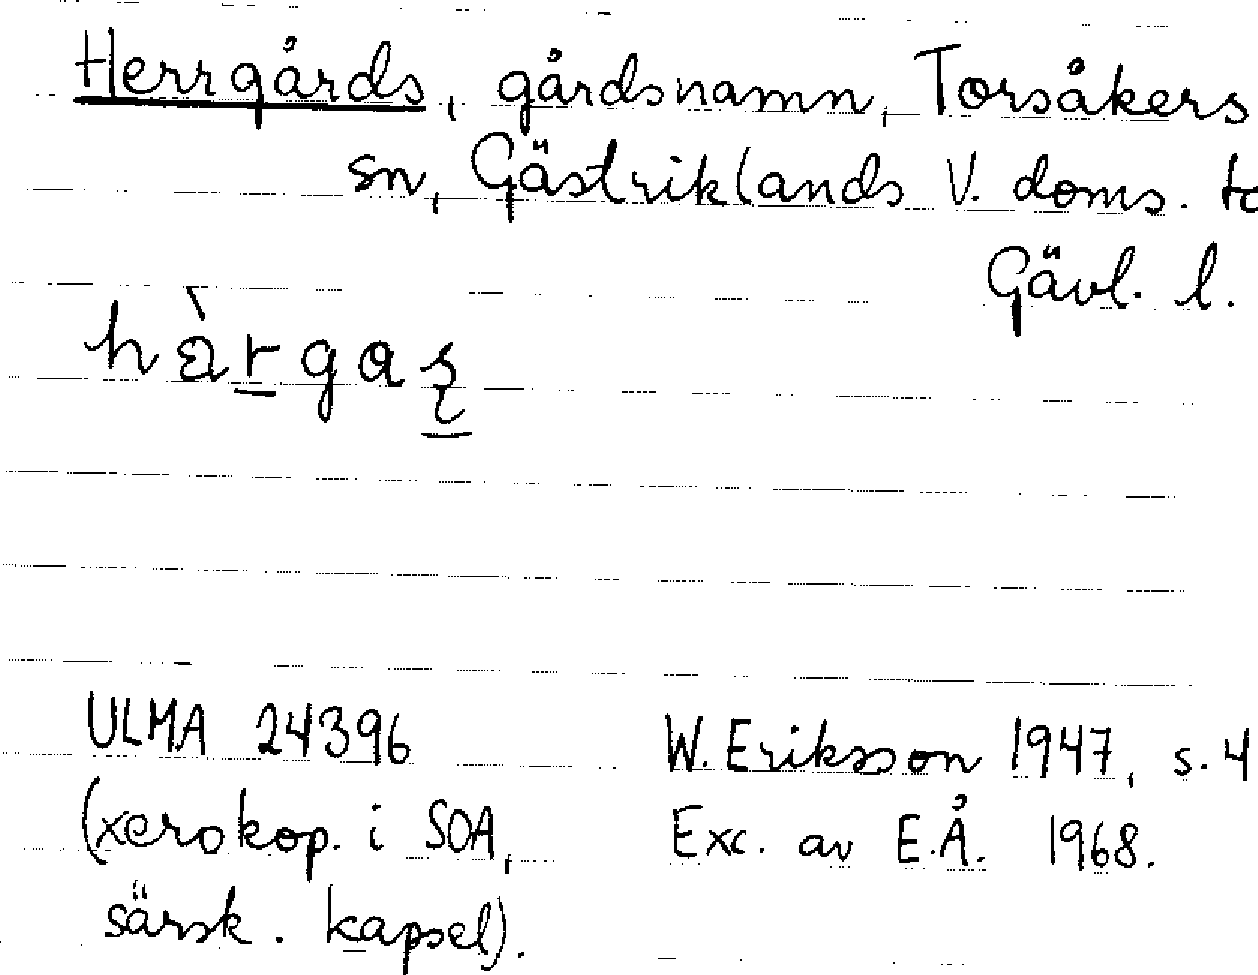 Herrgårds, gårdsnamn, Torsåkers
sn, Gästriklands V. doms. to
Gävl. l.
hàrgaş
ULMA 24396
(xerokop. i SOA,
särsk. kapsel).
W. Eriksson 1947, s. 4
Exc. av E.Å. 1968.